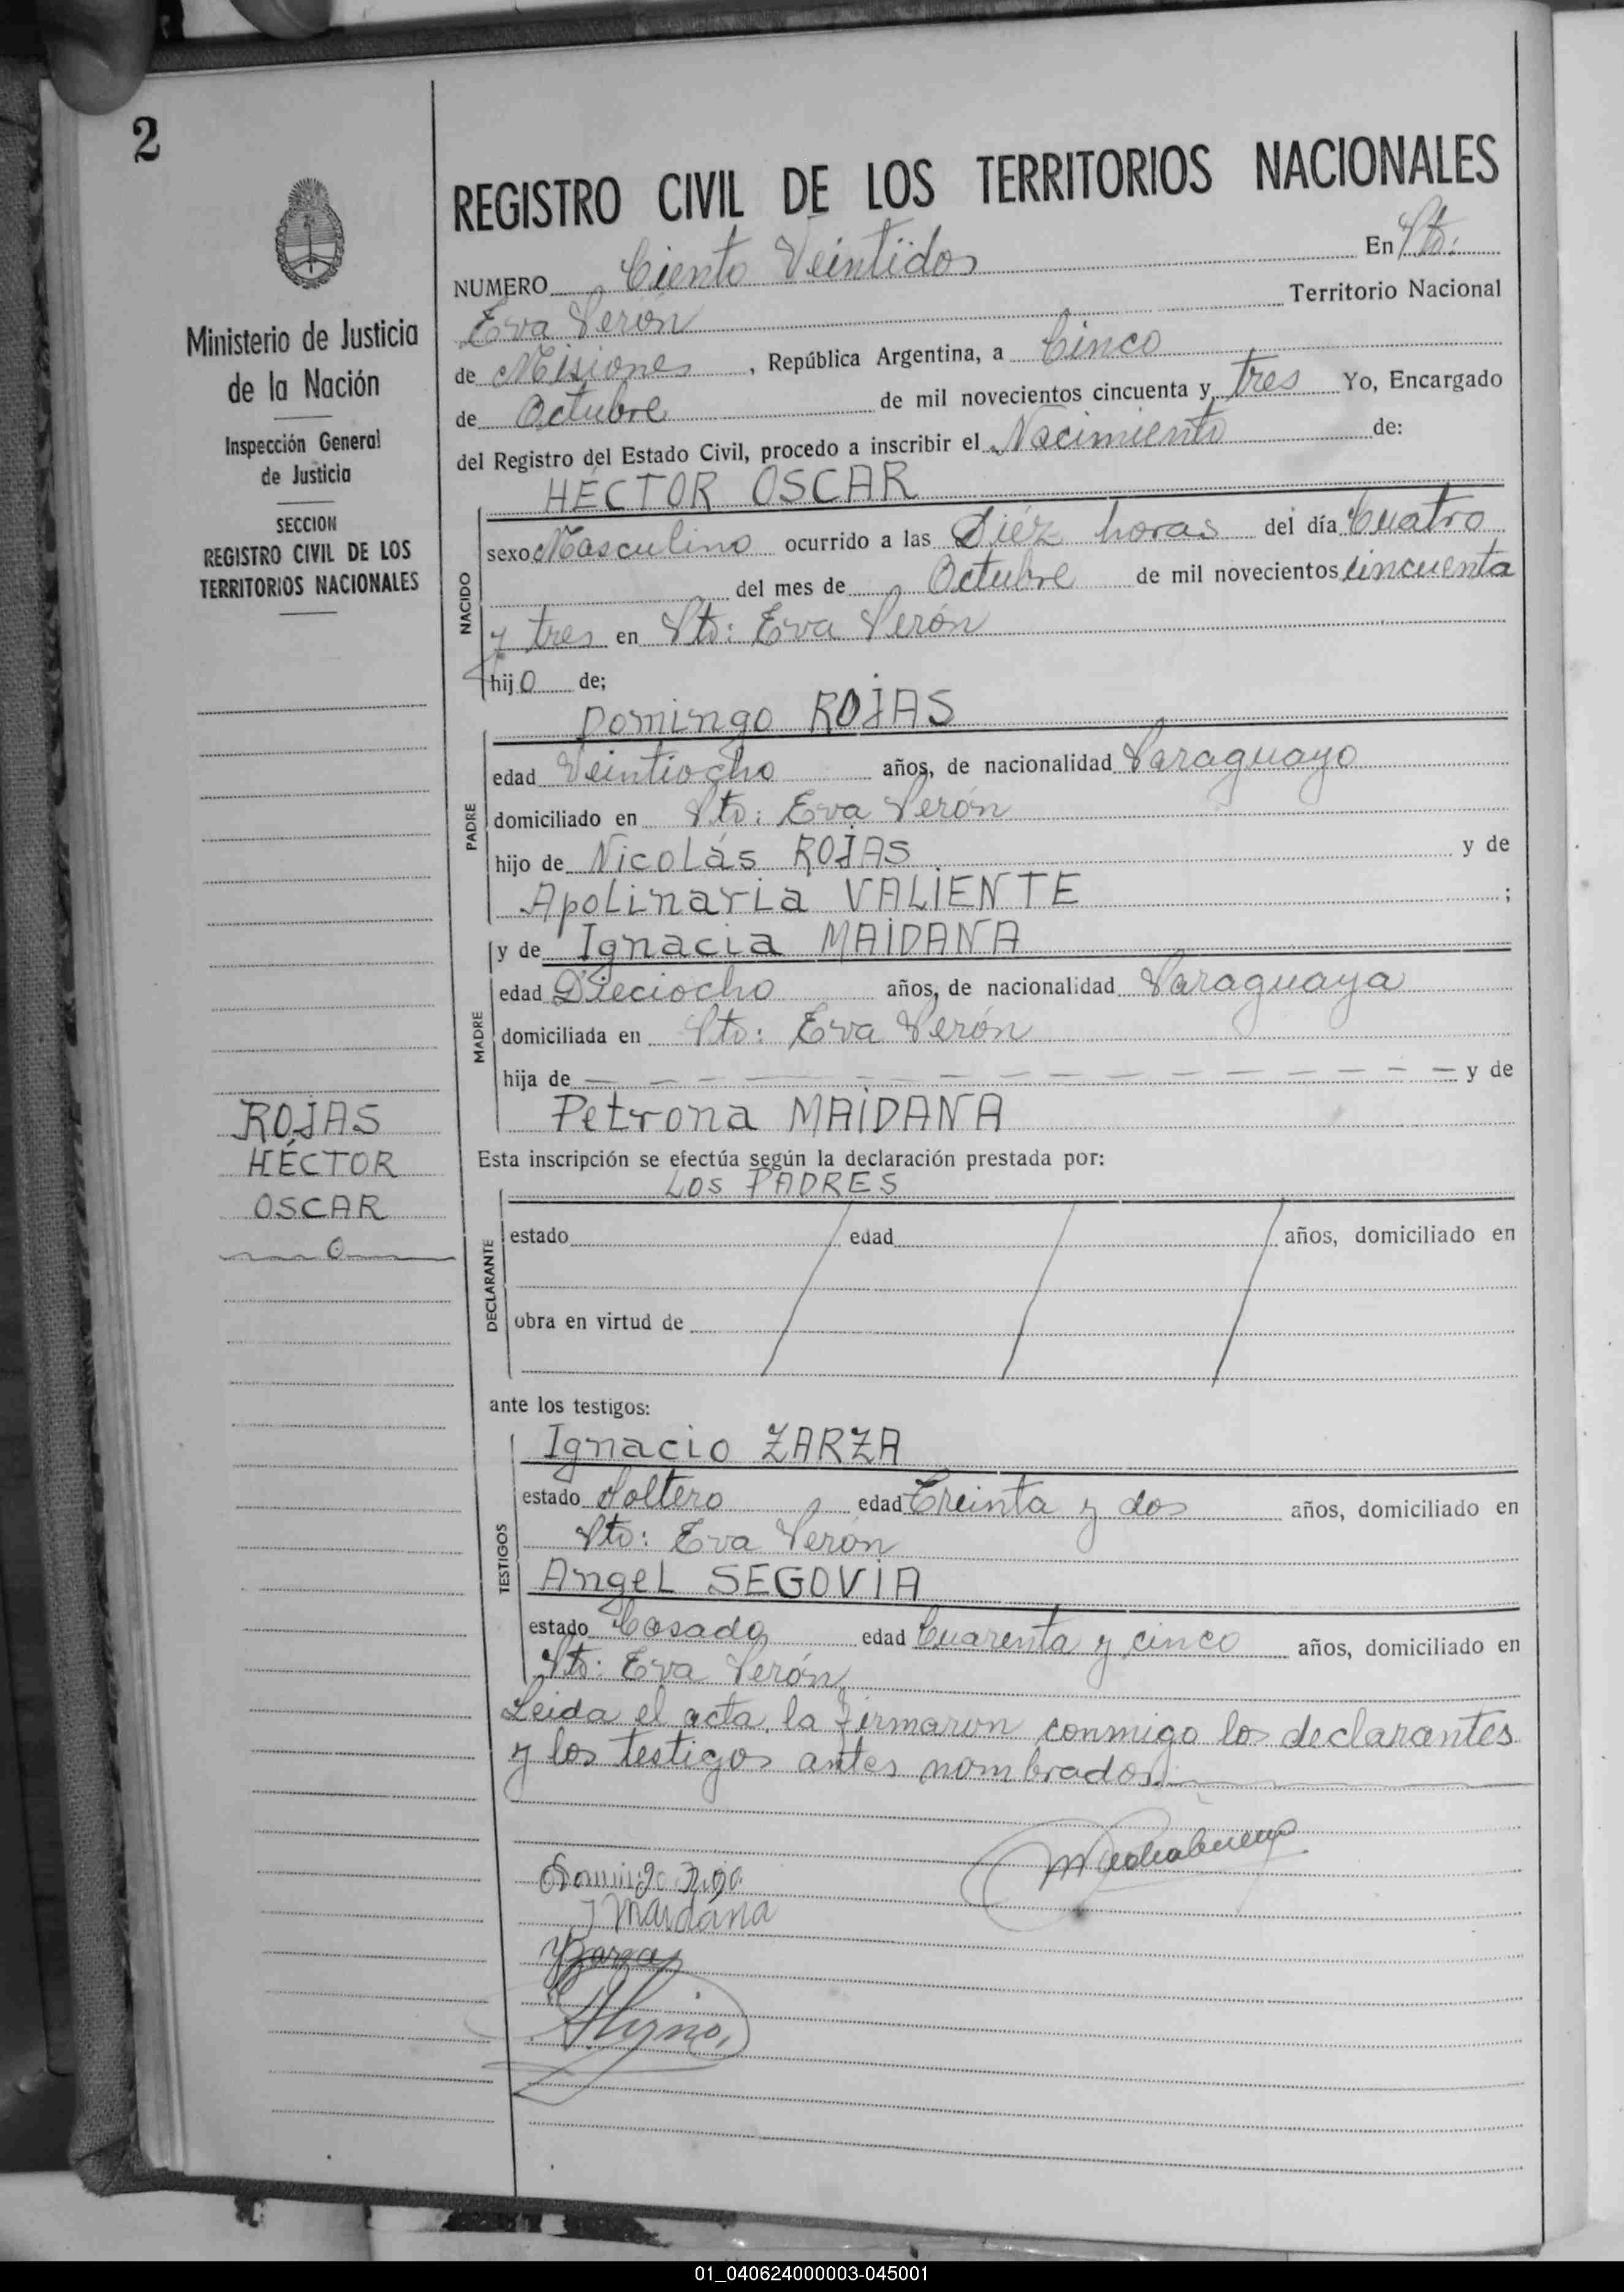 2
Ministerio de Justicia
de la Nación
Inspección General
de Justicia
SECCION
REGISTRO CIVIL DE LOS
TERRITORIOS NACIONALES
ROJAS
HÉCTOR
OSCAR
REGISTRO CIVIL DE LOS TERRITORIOS NACIONALES
NUMERO Ciento Veintidos En Pto:
Eva Perón Territorio Nacional
de Misiones, República Argentina, a Cinco
de Octubre de mil novecientos cincuenta y tres Yo, Encargado
del Registro del Estado Civil, procedo a inscribir el Nacimiento de:
HÉCTOR OSCAR
NACIDO
sexo Masculino ocurrido a las Diéz horas del día Cuatro
del mes de Octubre de mil novecientos cincuenta
y tres en Pto: Eva Perón
hijo de;
Domingo ROJAS
PADRE
edad Veintiocho años, de nacionalidad Paraguayo
domiciliado en Pto: Eva Perón
hijo de Nicolás ROJAS y de
Apolinaria VALIENTE ;
y de Ignacia MAIDANA
MADRE
edad Dieciocho años, de nacionalidad Paraguaya
domiciliada en Pto: Eva Perón
hija de — — — — — — — — — — — — y de
Petrona MAIDANA
Esta inscripción se efectúa según la declaración prestada por:
LOS PADRES
DECLARANTE
estado edad años, domiciliado en
obra en virtud de
ante los testigos:
Ignacio ZARZA
TESTIGOS
estado Soltero edad Treinta y dos años, domiciliado en
Pto: Eva Perón
Angel SEGOVIA
estado Casado edad Cuarenta y cinco años, domiciliado en
Pto: Eva Perón
Leida el acta, la firmaron conmigo los declarantes
y los testigos antes nombrados.
Domingo
I Maidana
01_040624000003-045001